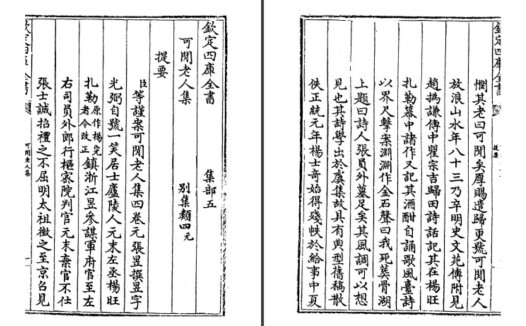 欽定四庫全書 集部五
可閒老人集 別集類四元
提要
臣等謹案可閒老人集四卷元張昱撰昱字
光弼自號一笑居士廬陵人元末左丞楊旺
扎勒原作楊完者今改正鎮浙江昱參謀軍府官至左
右司員外郎行樞密院判官元末棄官不仕
張士誠招禮之不屈明太祖徵之至京召見
可閒老人集
欽定四庫全書
提要
憫其老曰可閒矣厚賜遣歸更號可閒老人
放浪山水年八十三乃卒明史文苑傳附見
趙撝謙傳中瞿宗吉歸田詩話記其在楊旺
扎勒幕中諸作又記其酒酣自誦歌風臺詩
以界尺擊案淵淵作金石聲曰我死葬骨湖
上題曰詩人張員外墓足矣其風調可以想
見也其詩學出於虞集故具有典型舊稿散
佚正統元年楊士奇始得殘帙於給事中夏